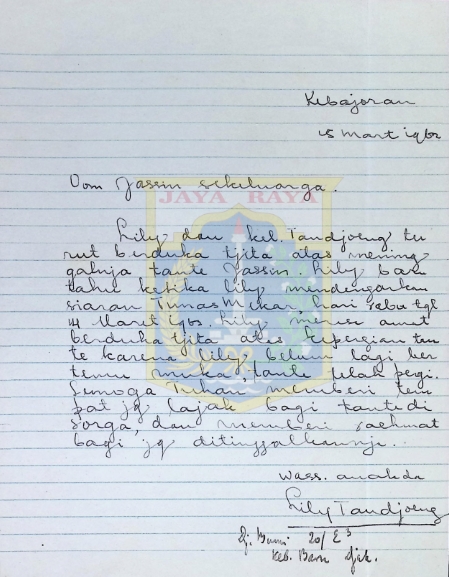 Kebajoran
15 Mart 1962
Oom Jassin sekeluarga.
JAYA RAYA
Lily dan kel. Tandjoeng tu
rut berduka tjita atas mening
galnja tante Jassin. Lily baru
tahu ketika lily mendengarkan
siaran Timas Mekar, hari sabu tgl
14 Maret lily merasa amat
berduka tjita atas kepergian tan
te karena lily belum lagi ber
temu muka, tante telah pergi.
Semoga Tuhan memberi tem
pat jg lajak bagi tante di
sorga, dan memberi rachmat
bagi jg ditinggalkannja.
Wass. anakda
Lily Tandjoeng
Dj. Bumi 20/E3
Keb. Baru Djk.